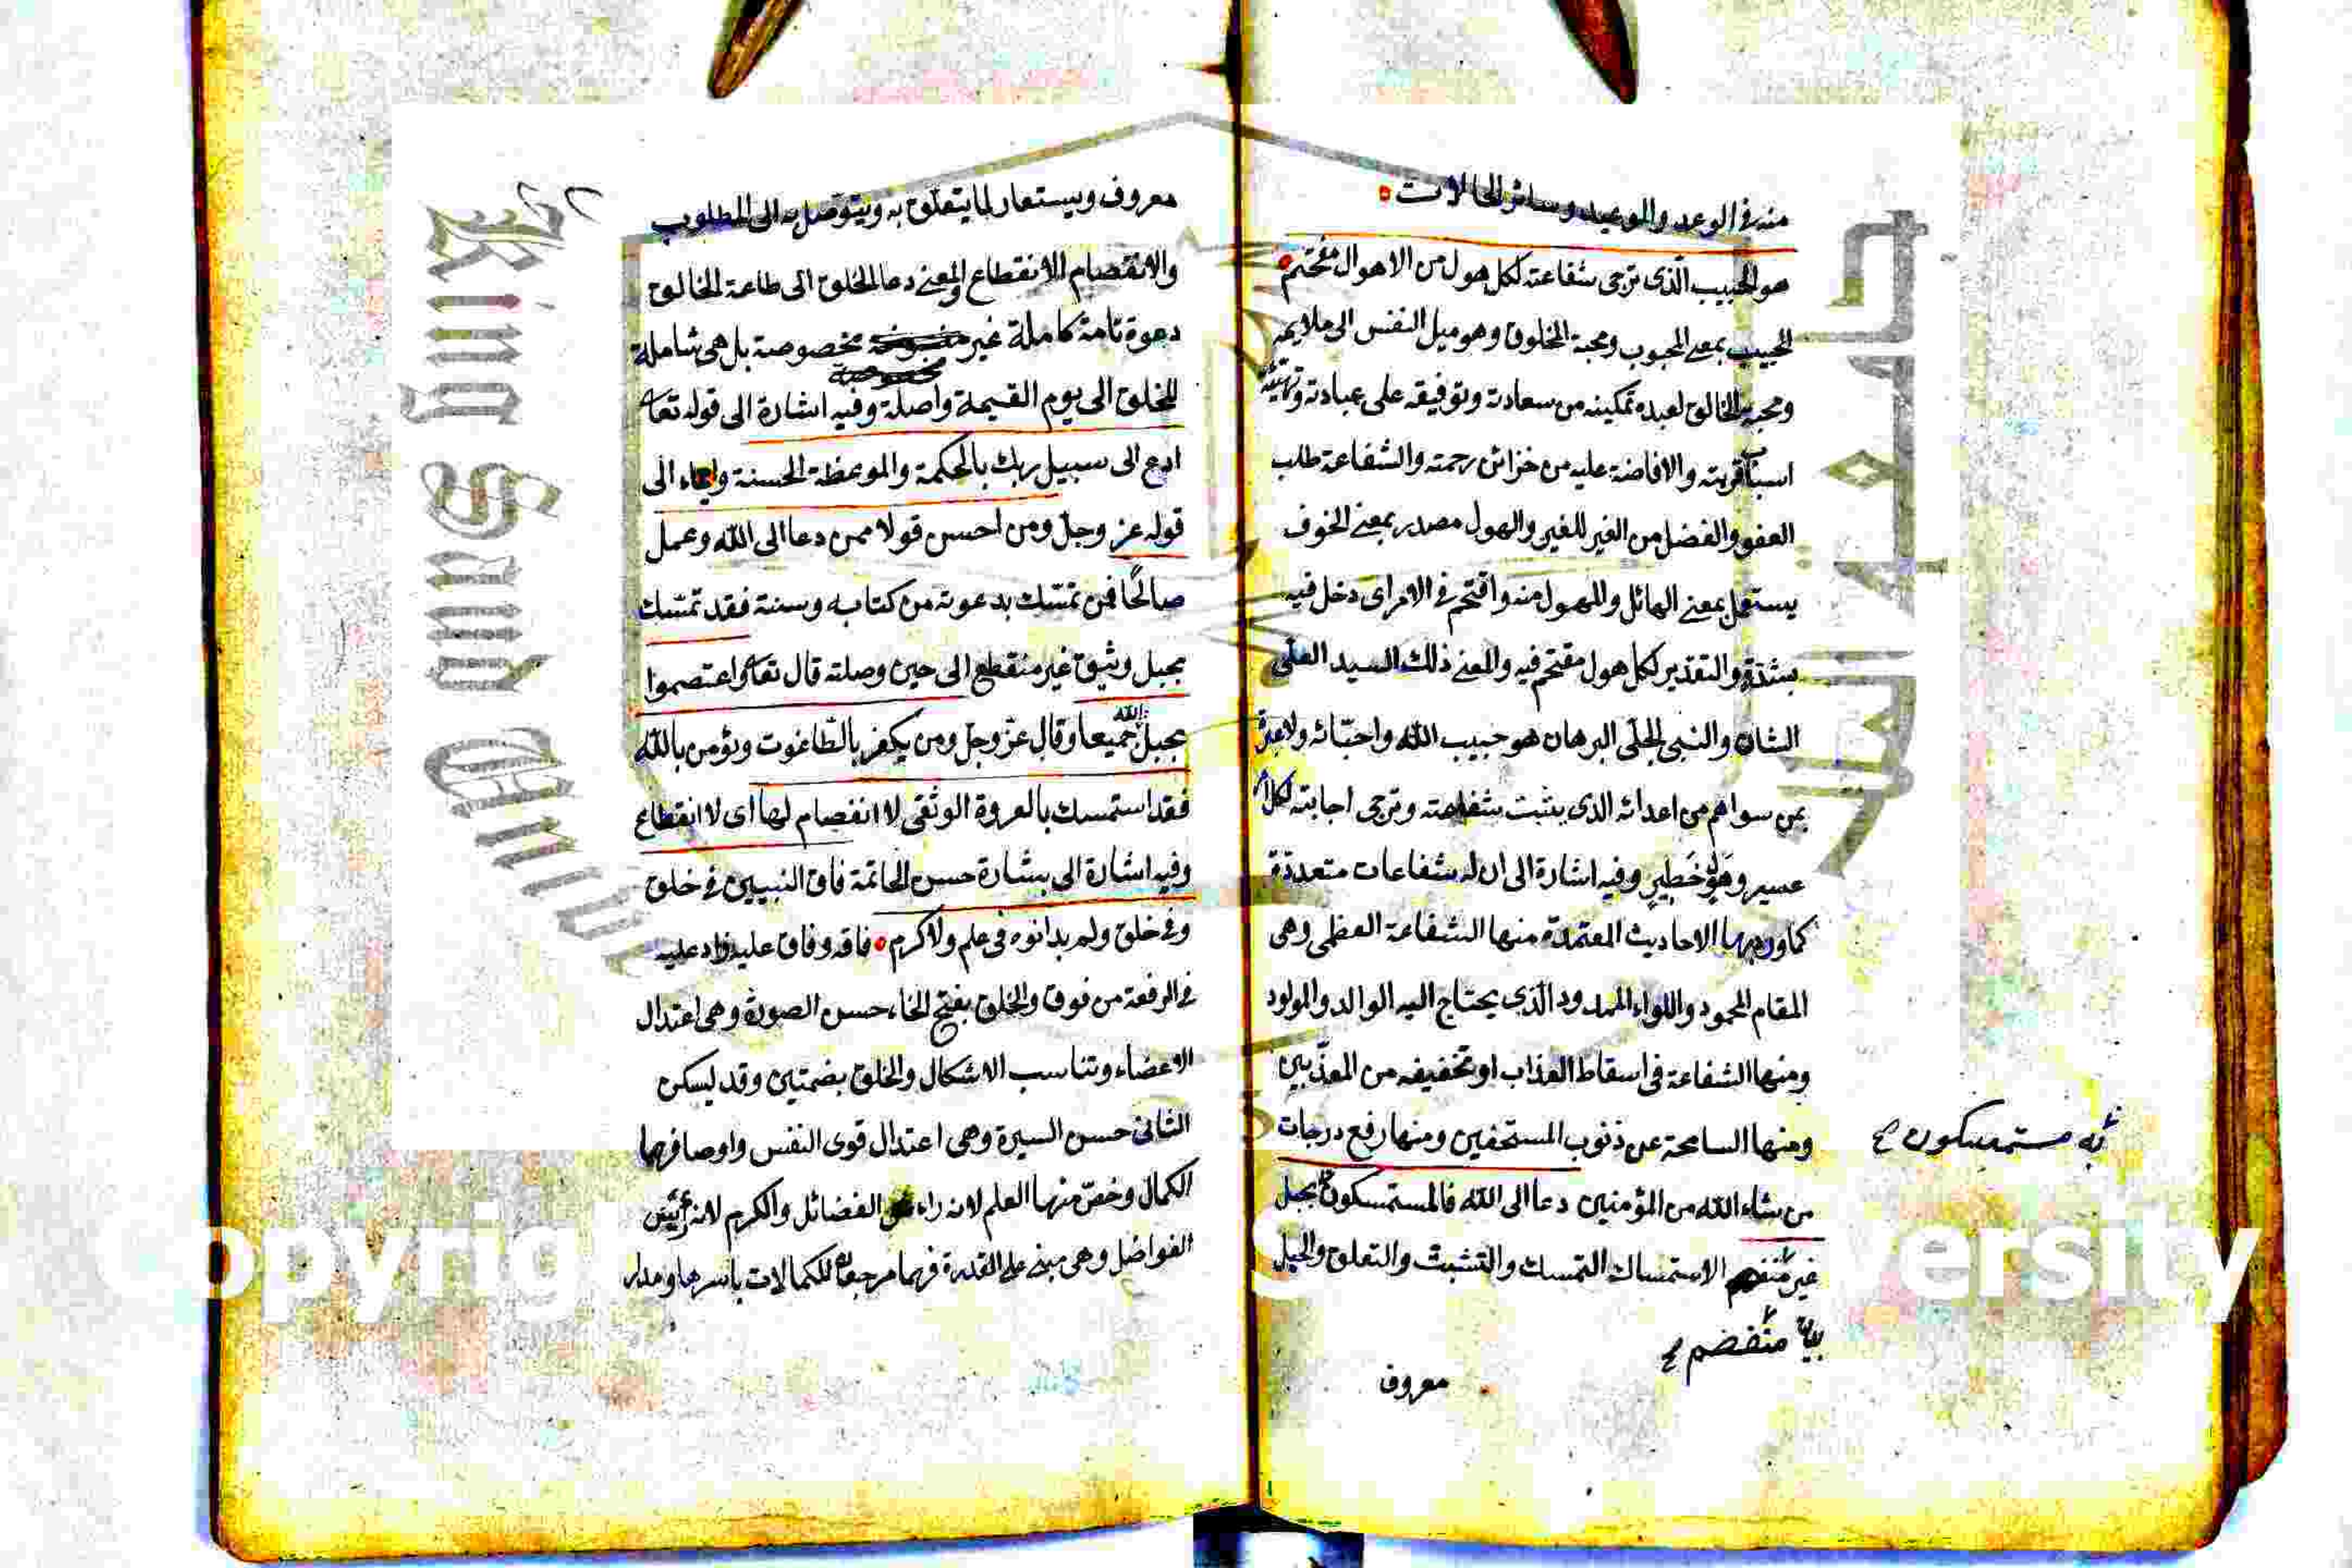 منه فى الوعد والوعيد وسائر الحالات
هو الحبيب الّذى ترجى شفاعته لكل هول من الاهوال مقتحم
الحبيب بمعنى المحبوب ومحبة المخلوق وهو ميل النفس الى ملايم
ومحبة الخالق لعبده تمكينه من سعادته وتوفيقه على عبادته وتهيئة
اسباب قربته والافاضة عليه من خزائن رحمته والشفاعة طلب
العفو والفضل من الغير للغير والهول مصدر بمعنى الخوف
يستعمل بمعنى الهائل والمهول منه واقتحم فى الامر اى دخل فيه
بشدة والتقدير لكل هول مقتحم فيه والمعنى ذلك السيد العلى
الشان والنبى الجلى البرهان هو حبيب الله واحبّائه
بمن سواهم من اعدائه الذى يثبت شفاعته وترجى اجابته لكل
عسير وهول خطير وفيه اشارة الى ان له شفاعات متعددة
كما ورد بها الاحاديث المعتمدة منها الشفاعة العظمى وهى
المقام المحمود واللواء الممدود الّذى يحتاج اليه الوالد والمولود
ومنها الشفاعة فى اسقاط العذاب او تخفيفه من المعذّبين
ومنها السامحة عن ذنوب المستحقين ومنها رفع درجات
به مستمسكون
من شاء الله من المؤمنين دعا الى الله فالمستمسكون بحبل
غير الاستمساك التمسك والتشبث والتعلق والحبل
منفصم
معروف
معروف ويستعار لما يتعلّق به ويتوصل به الى المطلوب
والانفصام الانقطاع والمعنى دعا الخلق الى طاعة الخالق
دعوة تامة كاملة غير مخصوصة بل هى شاملة
للخلق الى يوم القيمة واصلة وفيه اشارة الى قوله تعا
ادع الى سبيل ربك بالحكمة والموعظة الحسنة وايماء الى
قوله عز وجلّ ومن احسن قولا ممن دعا الى الله وعمل
صالحًا فمن تمسّك بدعوته من كتابه وسنته فقد تمسّك
بحبل وثيق غير منقطع الى حين وصلته قال تعا واعتصموا
بحبل الله جميعا وقال عزّ وجلّ ومن يكفر بالطّاغوت ويؤمن بالله
فقد استمسك بالعروة الوثقى لا انفصام لها اى لا انقطاع
وفيه اشارة الى بشارة حسن الخاتمة فاق النبيين فى خلق
وفى خلق ولم يدانوه فى علم ولا كرم فاقه وفاق عليه زاد عليه
فى الرفعة من فوق والخلق بفتح الخاء حسن الصورة وهى اعتدال
الاعضاء وتناسب الاشكال والخلق بضمتين وقد يسكن
الثانى حسن السيرة وهى اعتدال قوى النفس واوصافها
الكمال وخصّ منها العلم لانه راء الفضائل والكرم لانه
الفواضل وهى مبنى على القدرة فهما مرجعان للكمالات باسرها ومدار